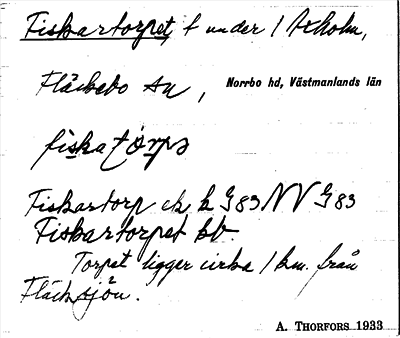 Fiskartorpet, t under 1 Axholm,
Fläckebo sn, Norrbo hd, Västmanlands län
fiskatorps
Fiskartorp ek k G 83 NV G 83
Fiskartorpet bb.
Torpet ligger cirka 1 km. från
Fläcksjön.
A. THORFORS 1933